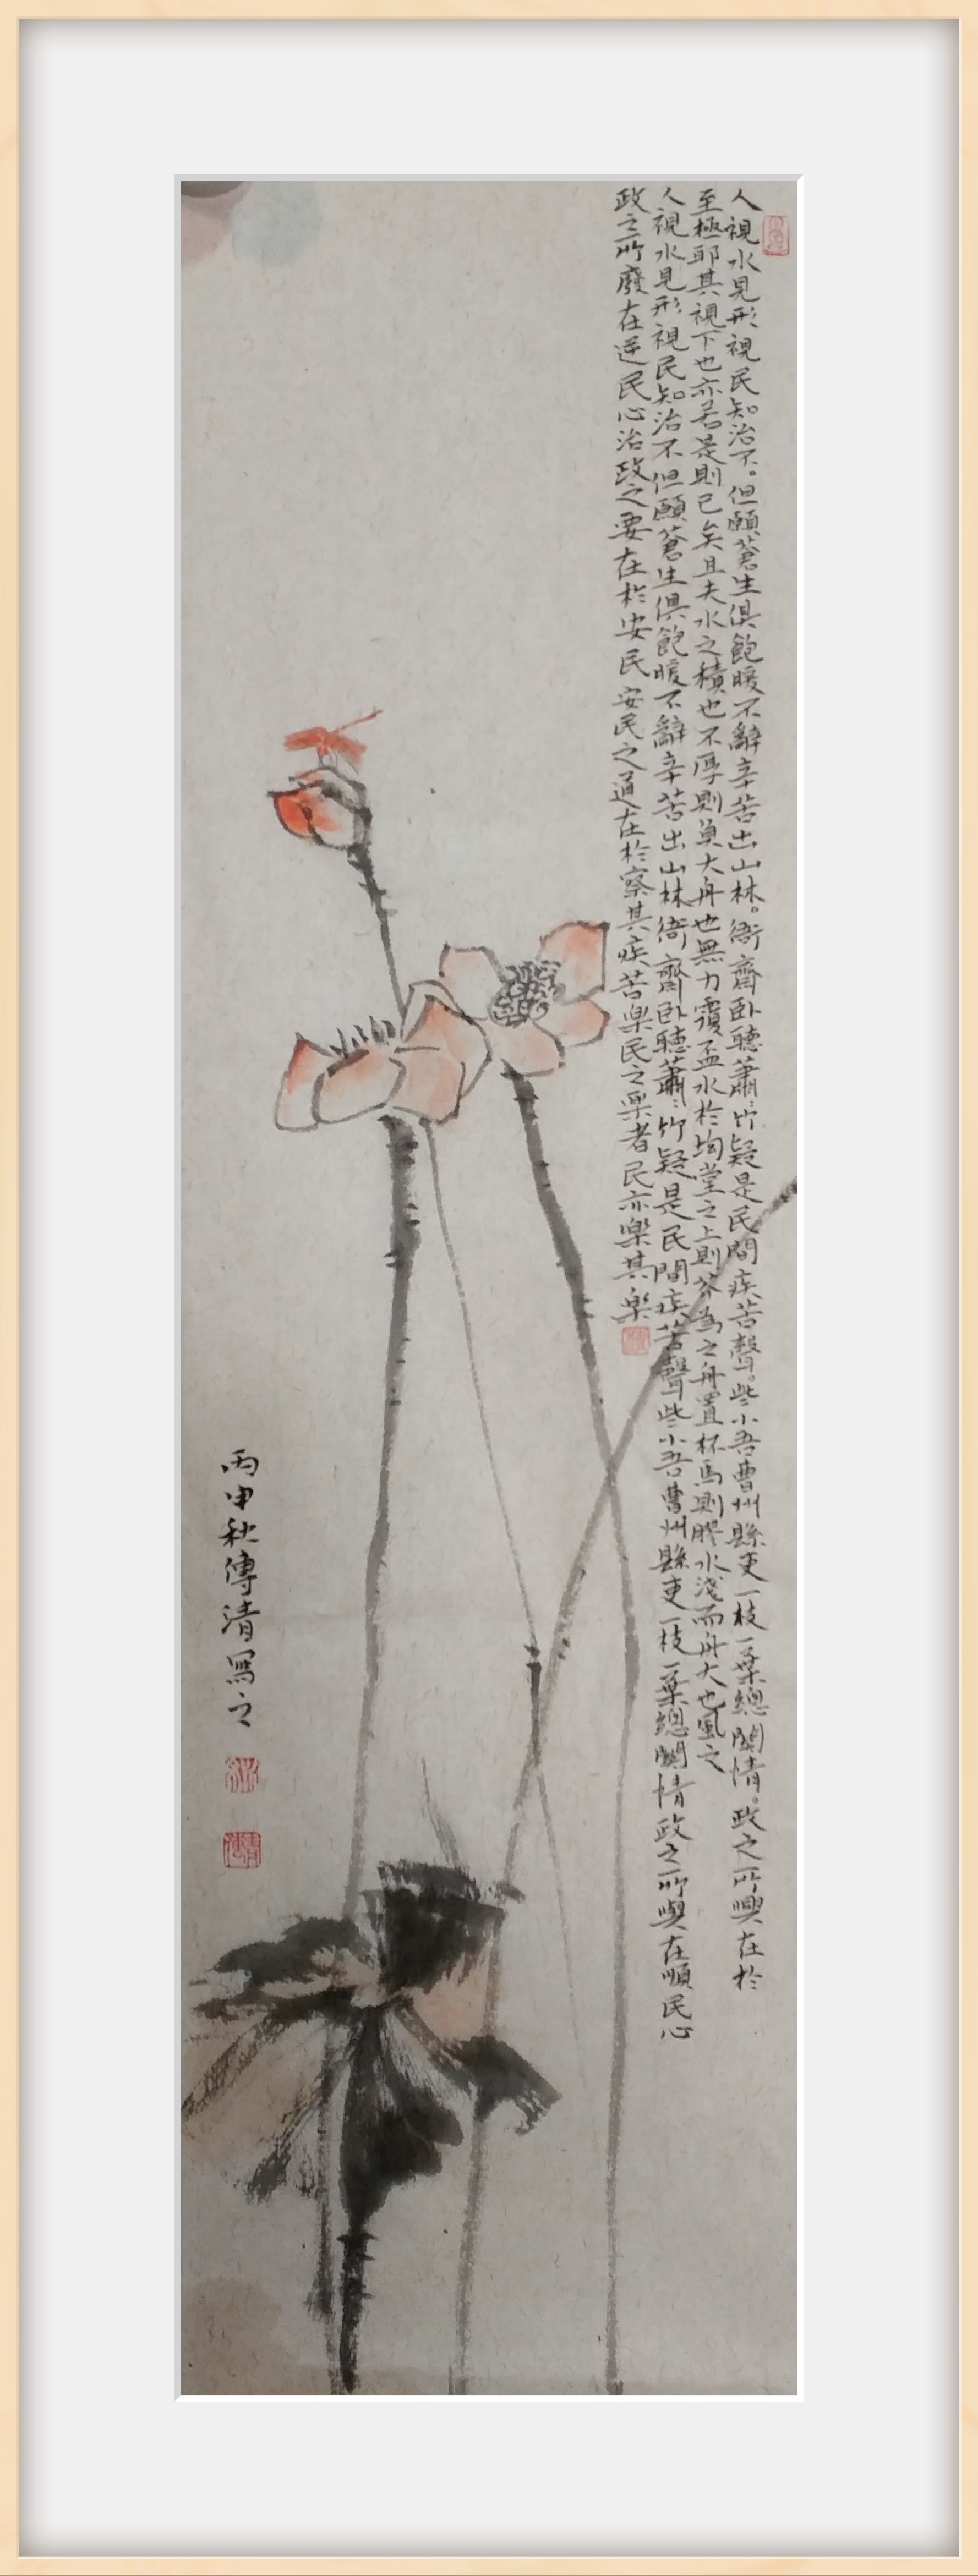 人視水見形視民知治不。但願蒼生俱飽暖不辭辛苦出山林。衙齋卧聽蕭:竹疑是民間疾苦聲。些小吾曹州縣吏一枝一葉總關情。政之所興在於
至極耶其視下也亦若是則已矣且夫水之積也不厚則負大舟也無力覆盃水於坳堂之上則芥為之舟置杯焉則膠水淺而舟大也風之
人視水見形視民知治不但願蒼生俱飽暖不辭辛苦出山林衙齋卧聽蕭:竹疑是民間疾苦聲些小吾曹州縣吏一枝一葉總關情政之所興在順民心
政之所廢在逆民心治政之要在於安民安民之道在於察其疾苦樂民之樂者民亦樂其樂
丙申秋傳清寫之